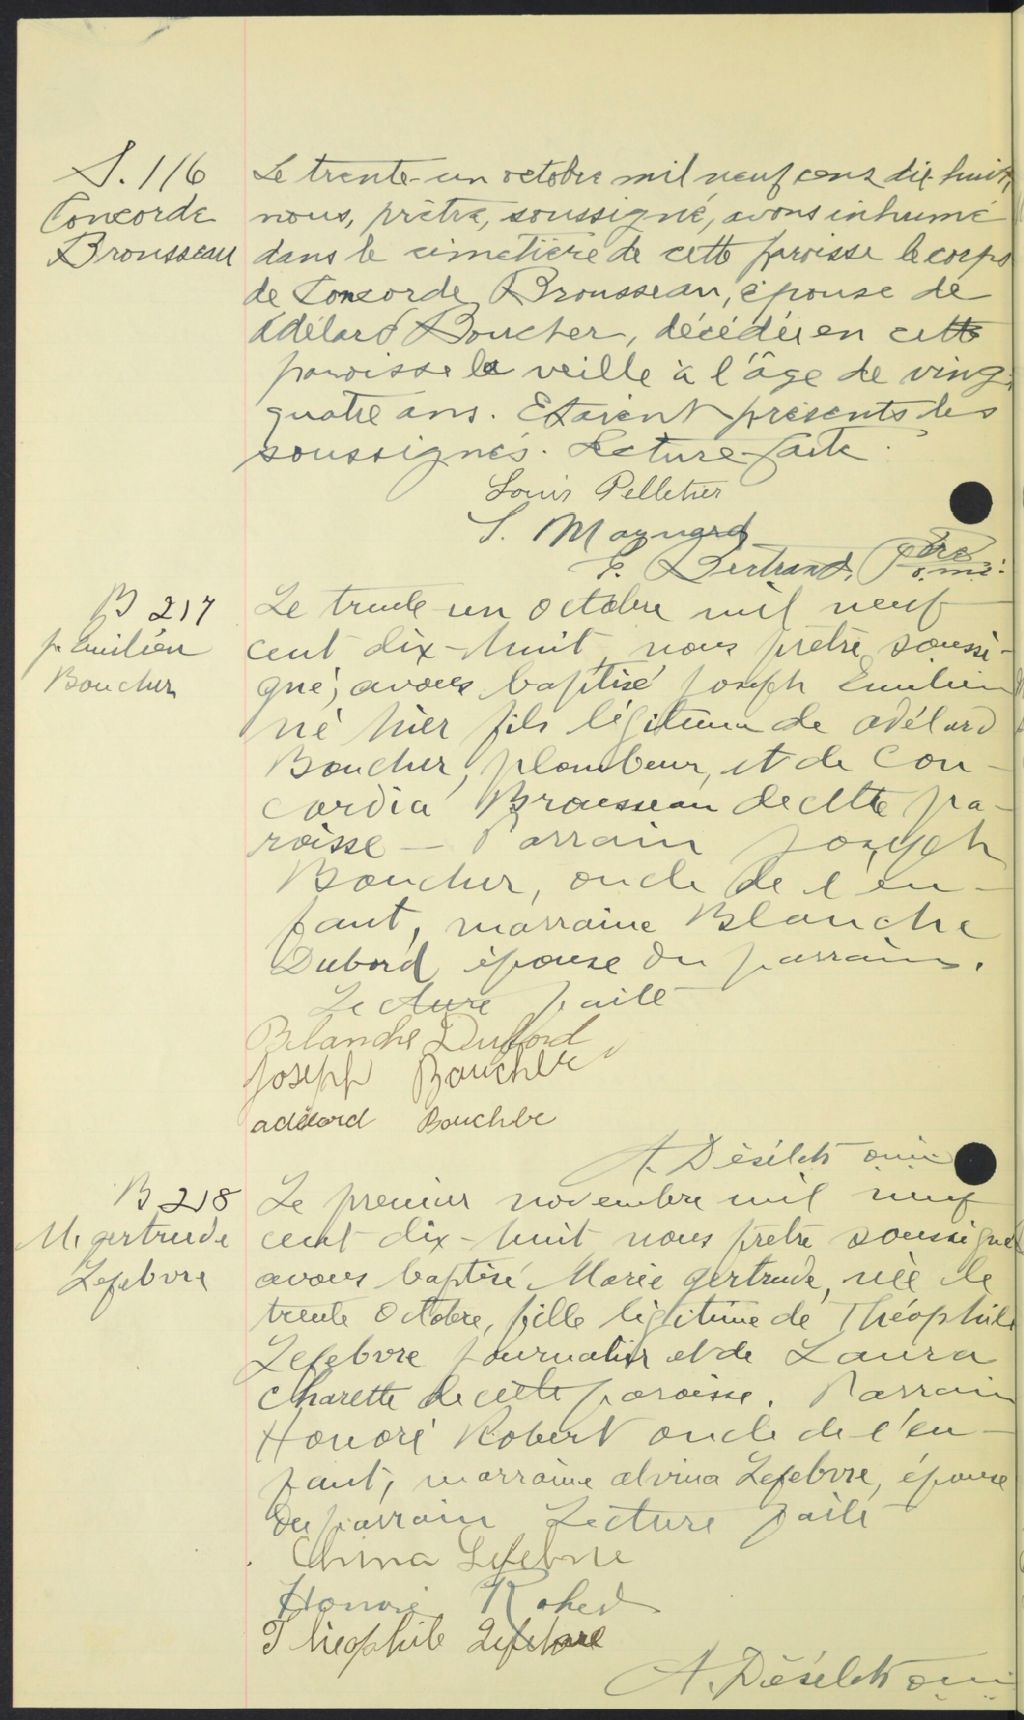 S. 116
Concorde
Brousseau
Le trente-un octobre mil neuf cent dix-huit
nous, prêtre, soussigné, avons inhumé
dans le cimetière de cette paroisse le corps
de Concorde Brousseau, épouse de
Adélard Boucher, décédée en cette
paroisse la veille à l'âge de vingt
quatre ans. Etaient présents les
soussignés. Lecture faite.
Louis Pelletier
S. Maynard
E. Bertrand, Ptre
o.m.i.
B 217
J. Emilien
Boucher
Le trente-un octobre mil neuf
cent dix-huit nous prêtre soussi-
gné, avons baptisé Joseph Emilien
né hier fils légitime de Adélard
Boucher, plombeur, et de Con-
cordia Brousseau de cette pa-
roisse — Parrain Joseph
Boucher, oncle de l'en-
fant, marraine Blanche
Dubord épouse du parrain.
Lecture faite
Blanche Dubord
Joseph Boucher
adélard Boucher
A. Désilets omi
B 218
M. gertrude
Lefebvre
Le premier novembre mil neuf
cent dix-huit nous prêtre soussigné
avons baptisé Marie gertrude, née le
trente octobre, fille légitime de Théophile
Lefebvre journalier et de Laura
Charette de cette paroisse. Parrain
Honoré Robert oncle de l'en-
fant, marraine alvina Lefebvre, épouse
du parrain Lecture faite
Lefebvre
Honoré Robert
Théophile Lefebvre
A. Désilets omi